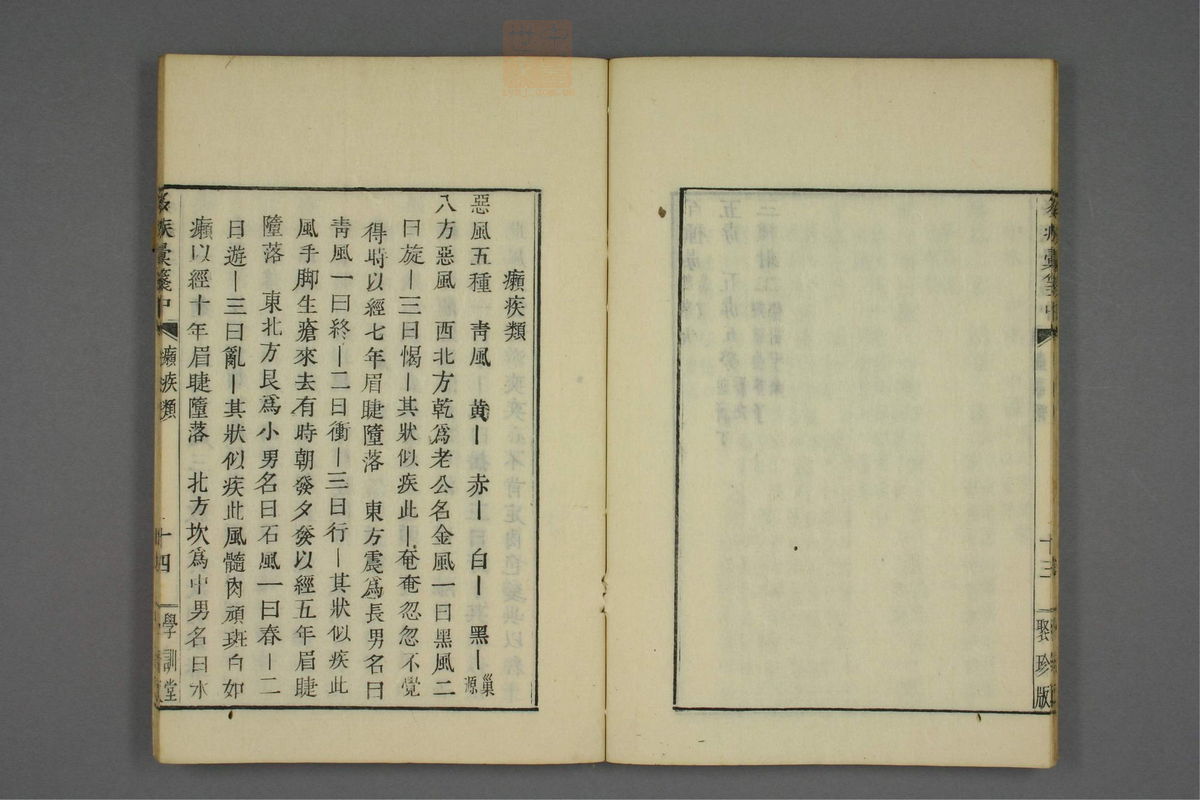 十三
聚珍版
癩疾類
惡風五種一靑風｜黄｜赤｜白｜黑｜巢源
八方惡風　西北方乾爲老公名金風一曰黑風二
曰旋｜三曰愒｜其狀似疾此｜奄奄忽忽不覺
得時以經七年眉睫墮落　東方震爲長男名曰
靑風一曰終｜二曰衝｜三曰行｜其狀似疾此
風手脚生瘡來去有時朝發夕發以經五年眉睫
墮落　東北方艮爲小男名曰石風一曰春｜二
曰遊｜三曰亂｜其狀似疾此風髓肉頑斑白如
癩以經十年眉睫墮落　北方坎爲中男名曰水
疾彙箋中　癩疾類　十四　學訓堂